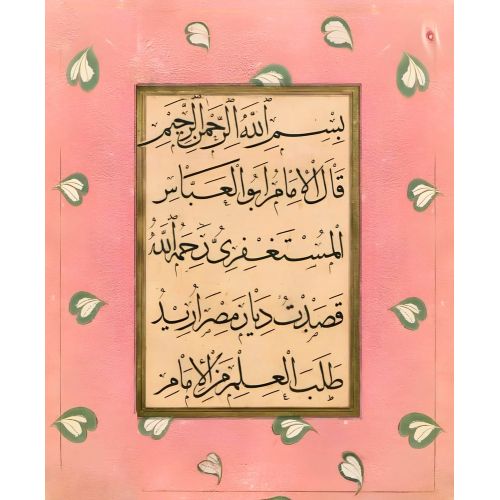 بسم الله الرحمن الرحيم
قال الإمام أبو العباس
المستغفري رحمه الله
قصدت ديار مصر أريد
طلب العلم من الإمام